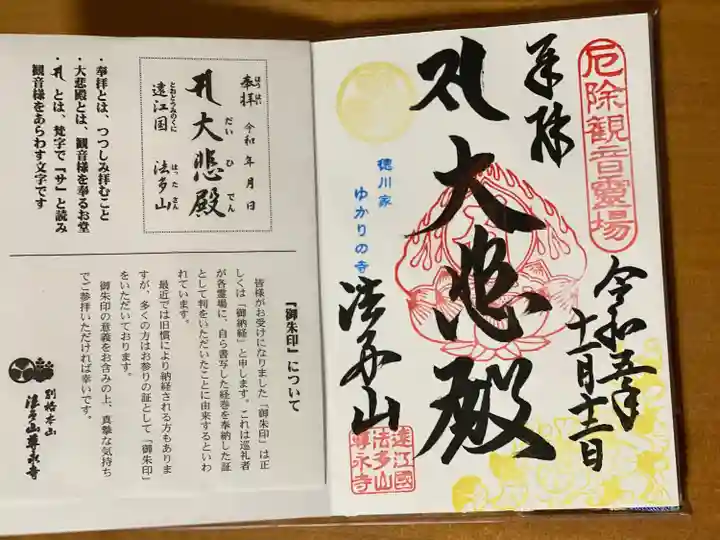 厄除観音霊場
奉拝
令和五年
十一月十二日
大悲殿
徳川家
ゆかりの寺
法多山
遠江國
法多山
尊永寺
奉拝 令和 年 月 日
ほうはい
大悲殿
だいひでん
遠江国 法多山
とおとうみのくに はったさん
・奉拝とは、つつしみ拝むこと
・大悲殿とは、観音様を奉るお堂
・ とは、梵字で『サ』と読み
観音様をあらわす文字です
『御朱印』について
皆様がお受けになりました「御朱印」は正
しくは「御納経」と申します。これは巡礼者
が各霊場に、自ら書写した経巻を奉納した証
として判をいただいたことに由来するといわ
れています。
最近では旧慣により納経される方もありま
すが、多くの方はお参りの証として「御朱印」
をいただいております。
御朱印の意義をお含みの上、真摯な気持ち
でご参拝いただければ幸いです。
別格本山
法多山尊永寺